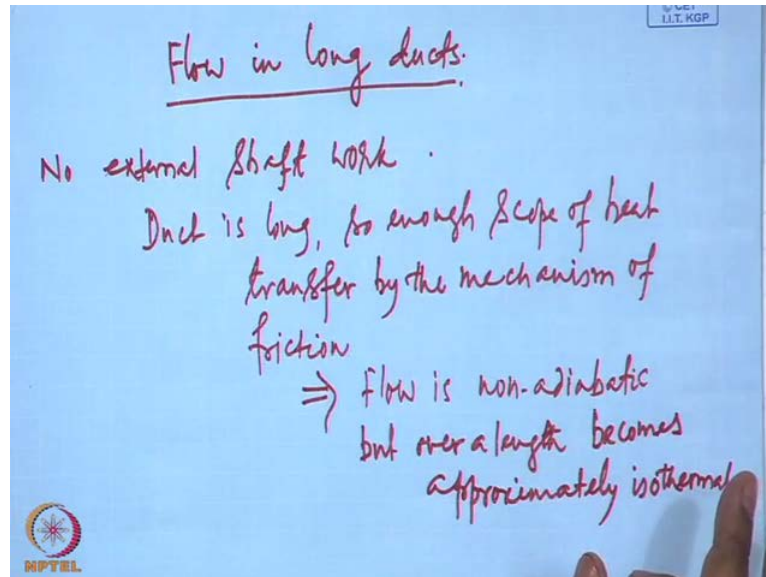 I.I.T. KGP
Flow in long ducts.
No external shaft work.
Duct is long, so enough scope of heat
transfer by the mechanism of
friction
⇒ Flow is non-adiabatic
but over a length becomes
approximately isothermal
NPTEL